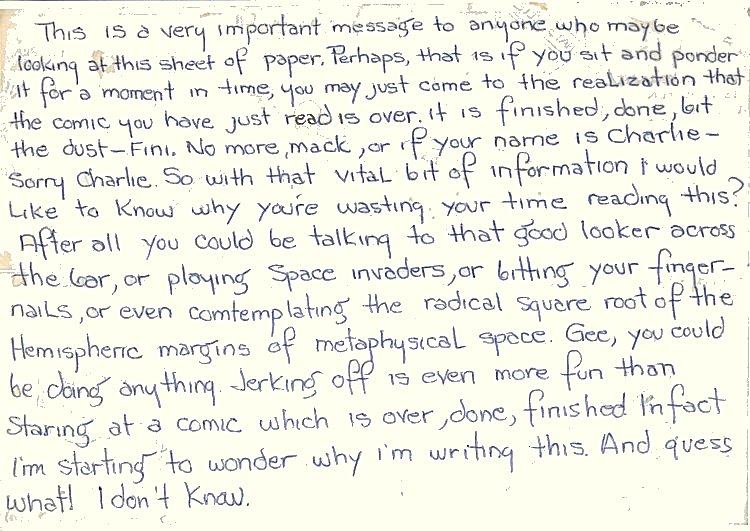 This is a very important message to anyone who maybe
looking at this sheet of paper. Perhaps, that is if you sit and ponder
it for a moment in time, you may just come to the realization that
the comic you have just read is over. it is finished, done, bit
the dust-Fini. No more, mack, or if your name is Charlie-
Sorry Charlie. So with that vital bit of information i would
Like to Know why you're wasting your time reading this?
After all you could be talking to that good looker across
the bar, or playing Space invaders, or bitting your finger-
nails, or even comtemplating the radical square root of the
Hemispheric margins of metaphysical space. Gee, you could
be doing anything. Jerking off is even more fun than
Staring at a comic which is over, done, finished Infact
I'm starting to wonder why i'm writing this. And guess
what! I don't Know.